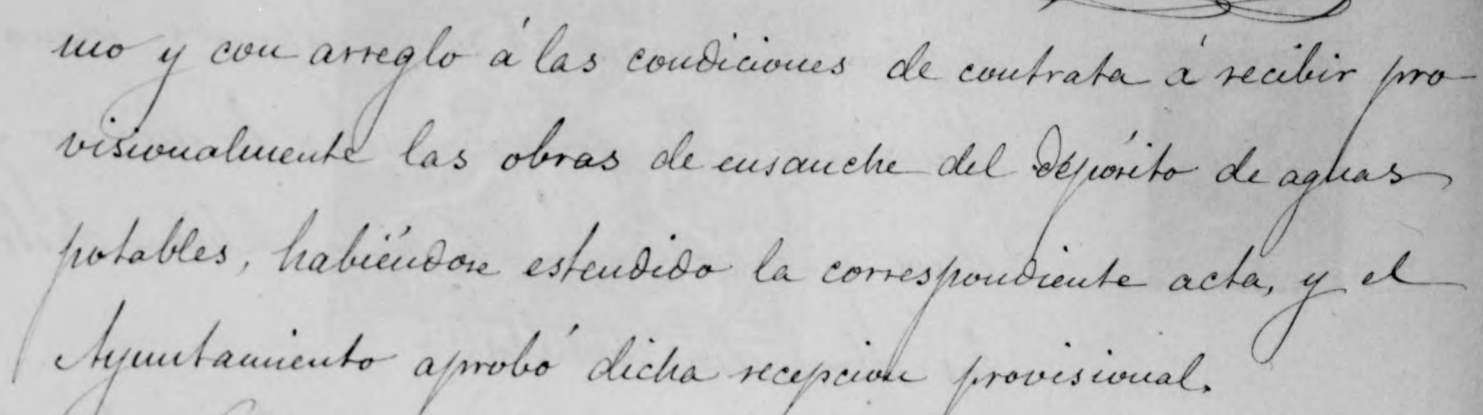 mo y con arreglo á las condiciones de contrata á recibir pro
visionalmente las obras de ensanche del depósito de aguas
potables, habiéndose estendido la correspondiente acta, y el
Ayuntamiento aprobó dicha recepcion provisional.